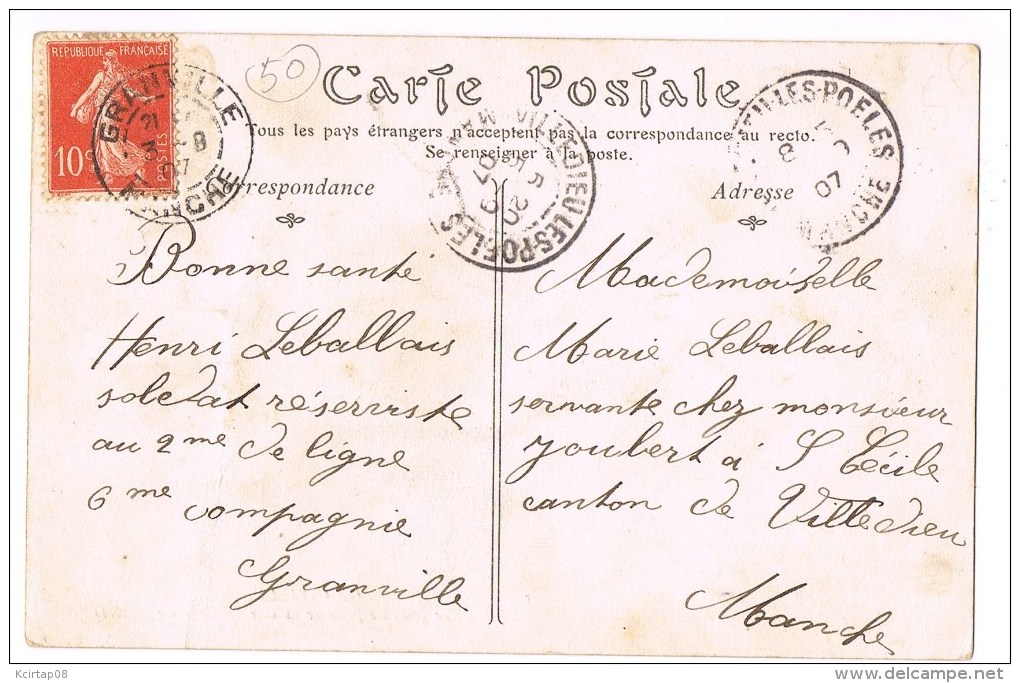 RÉPUBLIQUE FRANÇAISE
10c
POSTES
GRANVILLE
MANCHE
50
Carte Postale
Tous les pays étrangers n'acceptent pas la correspondance au recto.
Se renseigner à la poste.
VILLEDIEU-LES-POELES
5
20 - 9
07
LES-POELES
MANCHE
07
Correspondance
Bonne santé
Henri Leballais
soldat réserviste
au 2me de ligne
6me compagnie
Granville
Adresse
Mademoiselle
Marie Leballais
servante chez monsieur
Joubert à S Cécile
canton de Villedieu
Manche
Kcirtap08
delcampe.net